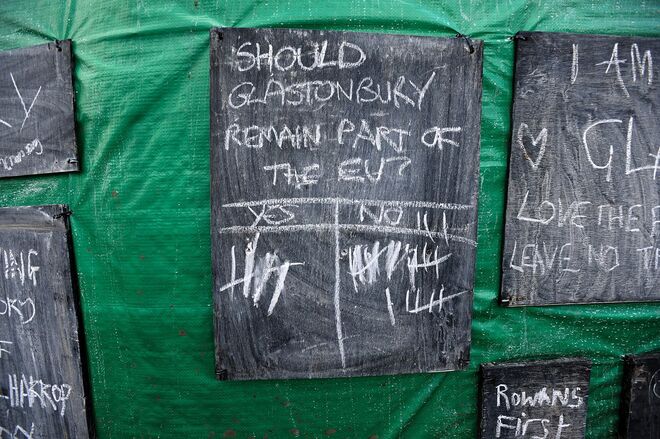 SHOULD
GLASTONBURY
REMAIN PART OF
THE EU?
YES NO
I AM
GLA
LOVE THE F
LEAVE NO T
Y
ING
ORY
F
HARROP
Rowans
First